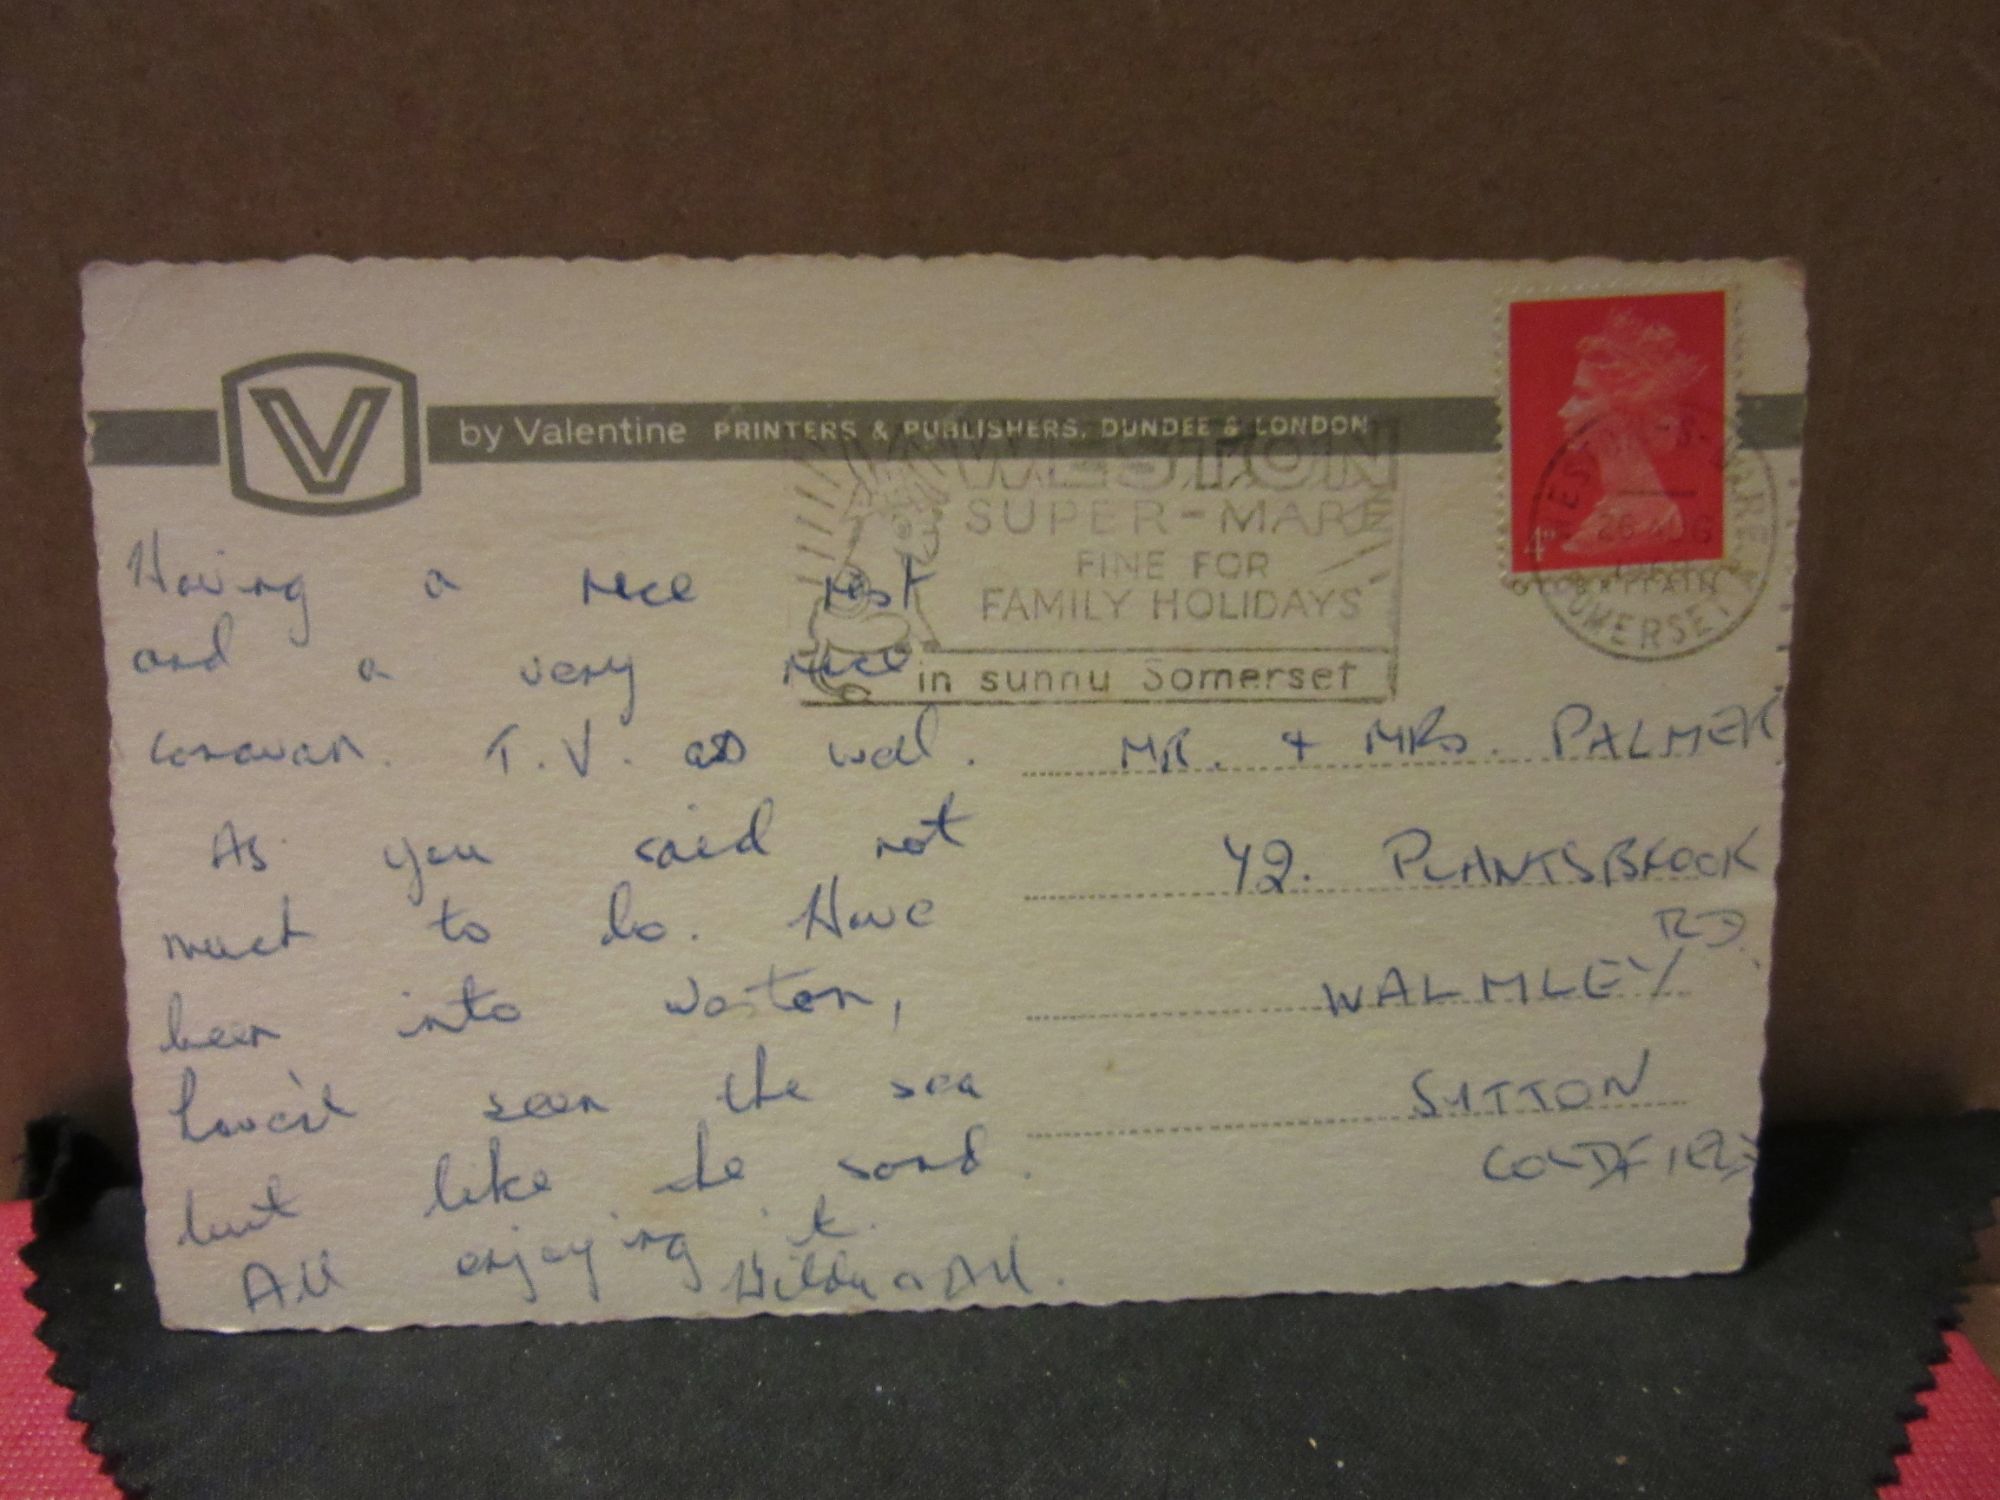 V
by Valentine PRINTERS & PUBLISHERS, DUNDEE & LONDON
WESTON
SUPER-MARE
FINE FOR
FAMILY HOLIDAYS
in sunny Somerset
4D
26 AUG
SOMERSET
Having a nice rest
and a very nice
caravan. T.V. as well.
As you said not
much to do. Have
been into Weston,
haven't seen the sea
but like the sand.
All enjoying it.
MR. + MRS. PALMER
42. PLANTSBROOK
RD.
WALMLEY
SUTTON
COLDFIELD